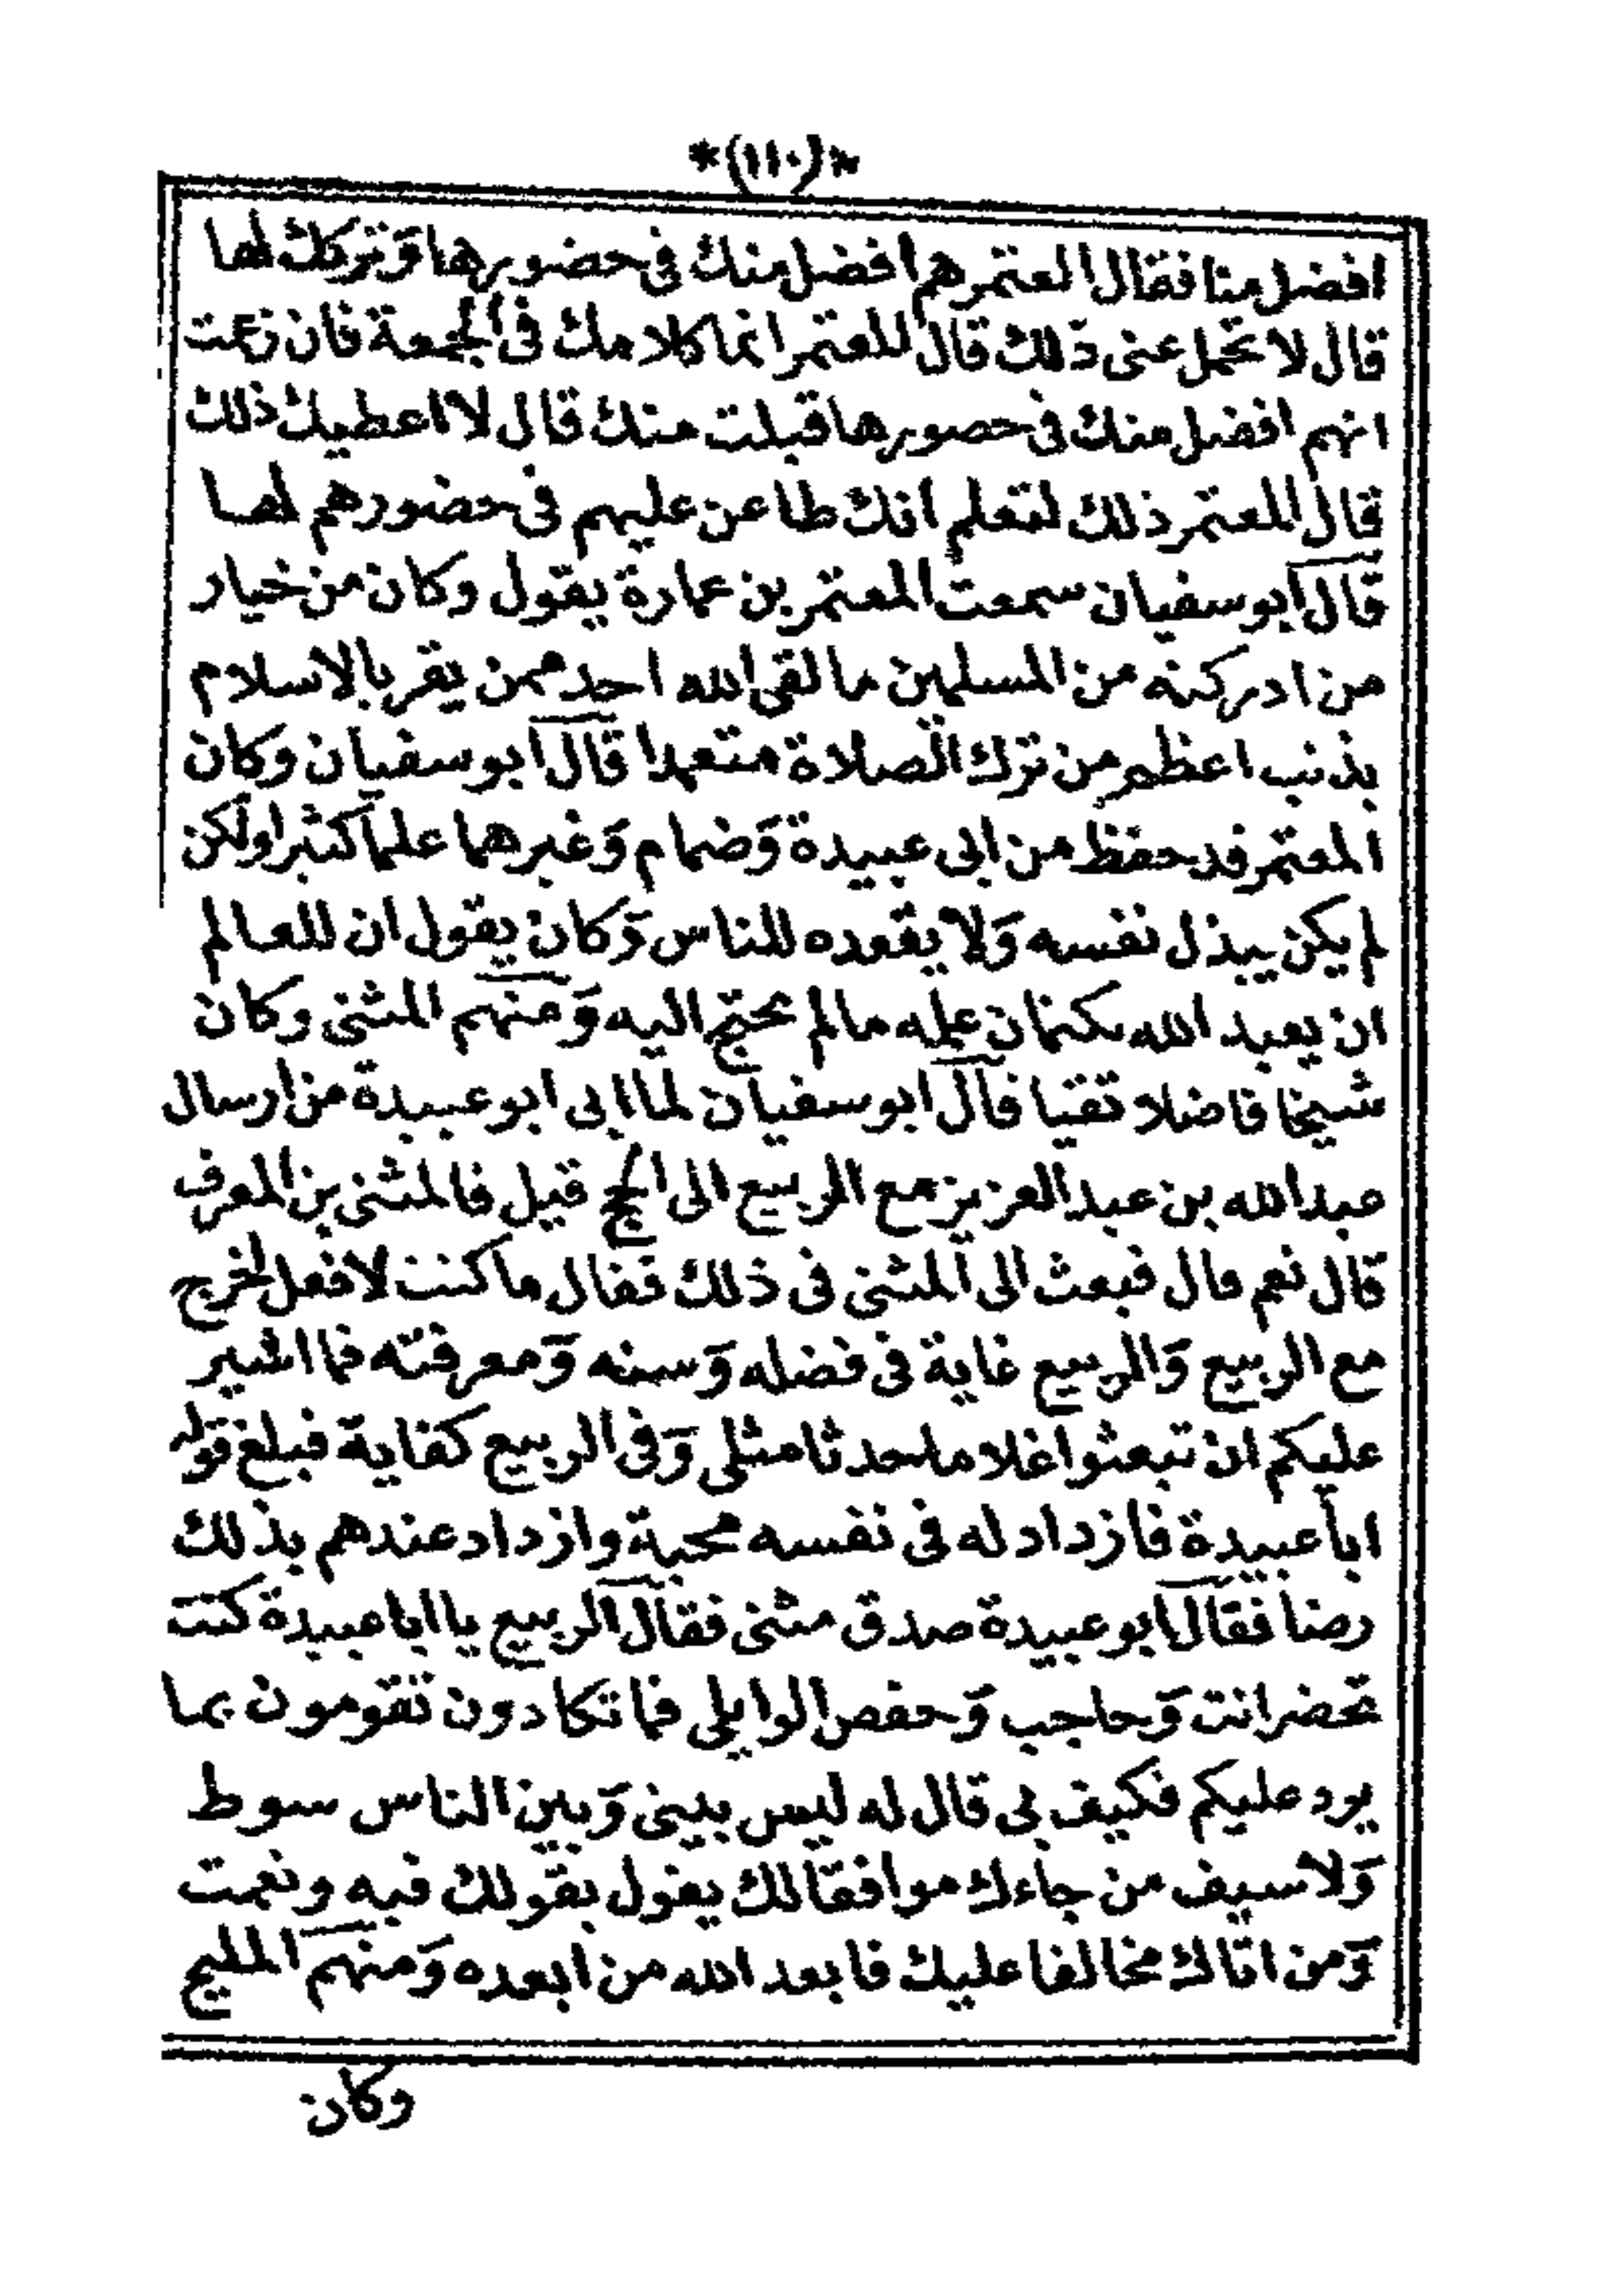 *(١١٠)*
افضل منا فقال المعتمر هم افضل منك في حضورها وتركك لها
قال لا تحمل عنى ذلك قال المعتمر انما كلامك في الجمعة فان زعمت
انهم افضل منك في حضورها قبلت منك قال لا اعطيك ذلك
قال المعتمر ذلك لتعلم انك طاعن عليهم في حضورهم لها
قال ابو سفيان سمعت المعتمر بن عمارة يقول وكان من خيار
من ادركته من المسلمين ما لقى الله احد ممن يقر بالاسلام
بذنب اعظم من ترك الصلاة متعمدا قال ابو سفيان وكان
المعتمر قد حفظ من ابى عبيدة وَضمام وَغيرهما علما كثيرا ولكن
لم يكن يبذل نفسه وَلا يقعده للناس وَكان يقول ان للعالم
ان يعبد الله بكتمان علمه ما لم يحتج اليه وَمنهم المثنى وكان
شيخا فاضلا تقيا قال ابو سفيان لما ابى ابو عبيدة من ارسال
عبد الله بن عبد العزيز مع الربيع الى الحج قيل فالمثنى بن المعرف
قال نعم قال فبعث الى المثنى في ذلك فقال ما كنت لافعل اخرج
مع الربيع وَالربيع غاية في فضله وَسنه وَمعرفته فما اشير
عليكم ان تبعثوا غلاما حدثا مثلى وَفي الربيع كفاية فبلغ قوله
ابا عبيدة فازداد له في نفسه محبة وازداد عندهم بذلك
رضا فقال ابو عبيدة صدق مثنى فقال الربيع يا ابا عبيدة كنت
تحضر انت وَحاجب وَحفص الوايلى فما تكادون تقومون بما
يرد عليكم فكيف بى قال له ليس بينى وَبين الناس سوط
وَلا سيف من جاءك موافقا لك يقول بقولك فبه ونعمت
وَمن اتاك مخالفا عليك فابعد الله من ابعده وَمنهم المليح
وكان